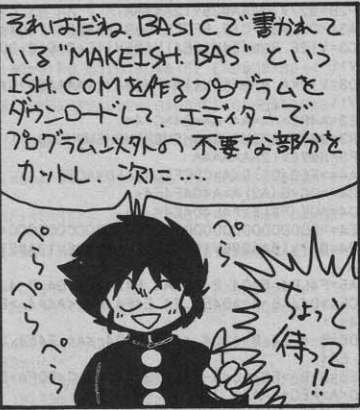 それはだね、BASICで書かれて
いる"MAKEISH.BAS"という
ISH.COMを作るプログラムを
ダウンロードして、エディターで
プログラム以外の不要な部分を
カットし、次に……
ぺら
ぺら
ぺら
ぺら
ちょっと
待って!!